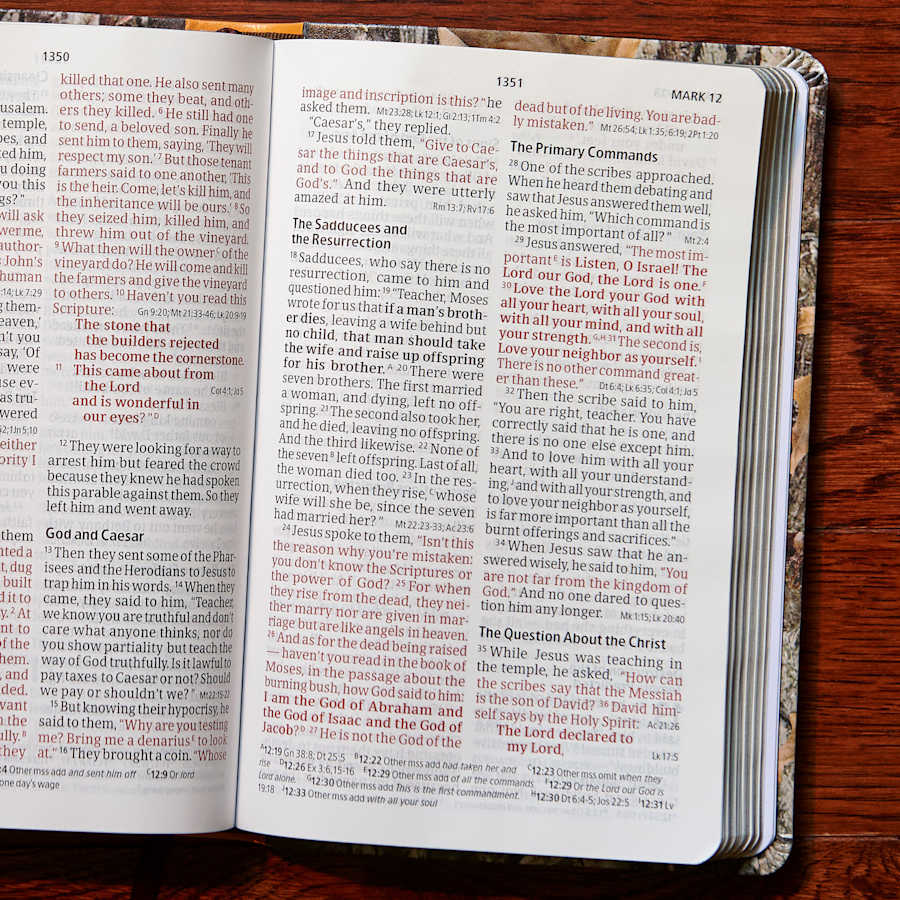 1350
usalem.
temple,
you this
will ask
author-
John's
human
:14; Lk 7:29
eaven,'
say, 'Of
were
wered
12; Jn 5:10
either
killed that one. He also sent many
others; some they beat, and oth-
ers they killed. 6 He still had one
to send, a beloved son. Finally he
sent him to them, saying, ‘They will
respect my son.’ 7 But those tenant
farmers said to one another, ‘This
is the heir. Come, let’s kill him, and
the inheritance will be ours.’ 8 So
they seized him, killed him, and
threw him out of the vineyard.
9 What then will the owner C of the
vineyard do? He will come and kill
the farmers and give the vineyard
to others. 10 Haven’t you read this
Scripture: Gn 9:20; Mt 21:33-46; Lk 20:9-19
The stone that
the builders rejected
has become the cornerstone.
11 This came about from
the Lord Col 4:1; Jd 5
and is wonderful in
our eyes?” D
12 They were looking for a way to
arrest him but feared the crowd
because they knew he had spoken
this parable against them. So they
left him and went away.
God and Caesar
13 Then they sent some of the Phar-
isees and the Herodians to Jesus to
trap him in his words. 14 When they
came, they said to him, “Teacher,
we know you are truthful and don’t
care what anyone thinks, nor do
you show partiality but teach the
way of God truthfully. Is it lawful to
pay taxes to Caesar or not? Should
we pay or shouldn’t we?” Mt 22:15-22
15 But knowing their hypocrisy, he
said to them, “Why are you testing
me? Bring me a denarius E to look
at.” 16 They brought a coin. “Whose
Other mss add and sent him off C 12:9 Or lord
one day's wage
1351
MARK 12
image and inscription is this?” he
asked them. Mt 23:28; Lk 12:1; Gl 2:13; 1Tm 4:2
“Caesar’s,” they replied.
17 Jesus told them, “Give to Cae-
sar the things that are Caesar’s,
and to God the things that are
God’s.” And they were utterly
amazed at him. Rm 13:7; Rv 17:6
The Sadducees and
the Resurrection
18 Sadducees, who say there is no
resurrection, came to him and
questioned him: 19 “Teacher, Moses
wrote for us that if a man’s broth-
er dies, leaving a wife behind but
no child, that man should take
the wife and raise up offspring
for his brother. A 20 There were
seven brothers. The first married
a woman, and dying, left no off-
spring. 21 The second also took her,
and he died, leaving no offspring.
And the third likewise. 22 None of
the seven B left offspring. Last of all,
the woman died too. 23 In the res-
urrection, when they rise, C whose
wife will she be, since the seven
had married her?” Mt 22:23-33; Ac 23:6
24 Jesus spoke to them, “Isn’t this
the reason why you’re mistaken:
you don’t know the Scriptures or
the power of God? 25 For when
they rise from the dead, they nei-
ther marry nor are given in mar-
riage but are like angels in heaven.
26 And as for the dead being raised
— haven’t you read in the book of
Moses, in the passage about the
burning bush, how God said to him:
I am the God of Abraham and
the God of Isaac and the God of
Jacob? D 27 He is not the God of the
dead but of the living. You are bad-
ly mistaken.” Mt 26:54; Lk 1:35; 6:19; 2Pt 1:20
The Primary Commands
28 One of the scribes approached.
When he heard them debating and
saw that Jesus answered them well,
he asked him, “Which command is
the most important of all?” Mt 2:4
29 Jesus answered, “The most im-
portant E is Listen, O Israel! The
Lord our God, the Lord is one. F
30 Love the Lord your God with
all your heart, with all your soul,
with all your mind, and with all
your strength. G,H 31 The second is,
Love your neighbor as yourself. I
There is no other command great-
er than these.” Dt 6:4; Lk 6:35; Col 4:1; Jd 5
32 Then the scribe said to him,
“You are right, teacher. You have
correctly said that he is one, and
there is no one else except him.
33 And to love him with all your
heart, with all your understand-
ing, J and with all your strength, and
to love your neighbor as yourself,
is far more important than all the
burnt offerings and sacrifices.”
34 When Jesus saw that he an-
swered wisely, he said to him, “You
are not far from the kingdom of
God.” And no one dared to ques-
tion him any longer. Mk 1:15; Lk 20:40
The Question About the Christ
35 While Jesus was teaching in
the temple, he asked, “How can
the scribes say that the Messiah
is the son of David? 36 David him-
self says by the Holy Spirit: Ac 21:26
The Lord declared to
my Lord, Lk 17:5
A 12:19 Gn 38:8; Dt 25:5 B 12:22 Other mss add had taken her and C 12:23 Other mss omit when they
rise D 12:26 Ex 3:6,15-16 E 12:29 Other mss add of all the commands F 12:29 Or the Lord our God is
Lord alone. G 12:30 Other mss add This is the first commandment. H 12:30 Dt 6:4-5; Jos 22:5 I 12:31 Lv
19:18 J 12:33 Other mss add with all your soul